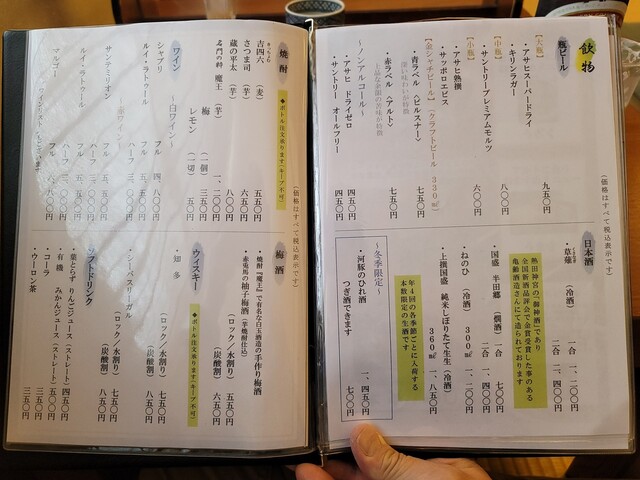 飲物
(価格はすべて税込表示です)
瓶ビール
【大瓶】
・アサヒスーパードライ
・キリンラガー 九五〇円
【中瓶】
・サントリープレミアムモルツ 八〇〇円
【小瓶】
・アサヒ熟撰
・サッポロエビス 六〇〇円
【金シャチビール】(クラフトビール 330㎖)
・青ラベル〈ピルスナー〉 七五〇円
・赤ラベル〈アルト〉 七五〇円
~ノンアルコール~
・アサヒ ドライゼロ 四五〇円
・サントリー オールフリー 四五〇円
日本酒
・草薙 (冷酒) 一合 一、二〇〇円
二合 二、四〇〇円
熱田神宮の「御神酒」であり
全国新酒品評会で金賞受賞した事のある
亀齢酒造さんにて造られております
・国盛 半田郷 (燗酒) 一合 七〇〇円
二合 一、四〇〇円
・ねのひ (冷酒) 300㎖ 一、二〇〇円
・上撰国盛 純米しぼりたて生生(冷酒)
360㎖ 一、八五〇円
年4回の各季節ごとに入荷する
本数限定の生酒です
~冬季限定~
・河豚のひれ酒 一、四五〇円
つぎ酒できます 七〇〇円
焼酎
(価格はすべて税込表示です)
◆ボトル注文承ります(キープ不可)
吉四六 (麦) 五五〇円
さつま司 (芋) 六五〇円
蔵の平太 (芋) 八〇〇円
名門の粋 魔王 (芋) 一、二〇〇円
梅 (一個) 三五〇円
レモン (一切) 五〇円
ワイン
~白ワイン~
シャブリ フル 四、八〇〇円
ルイ・ラトゥール ハーフ 三、〇〇〇円
サンテミリオン フル 五、五〇〇円
ルイ・ラトゥール ハーフ 三、〇〇〇円
マルゴー
梅酒
・焼酎『魔王』で有名な白玉酒造の手作り梅酒
(ロック/水割り) 五五〇円
・赤兎馬の柚子梅酒(芋焼酎仕込)
(炭酸割) 六五〇円
ウィスキー
◆ボトル注文承ります(キープ不可)
・知多 (ロック/水割り) 七五〇円
(炭酸割) 八五〇円
・シーバスリーガル
(ロック/水割り) 七五〇円
(炭酸割) 八五〇円
ソフトドリンク
・葉とらず りんごジュース(ストレート) 四五〇円
・有機 みかんジュース(ストレート) 五〇〇円
・コーラ 三五〇円
・ウーロン茶 三五〇円